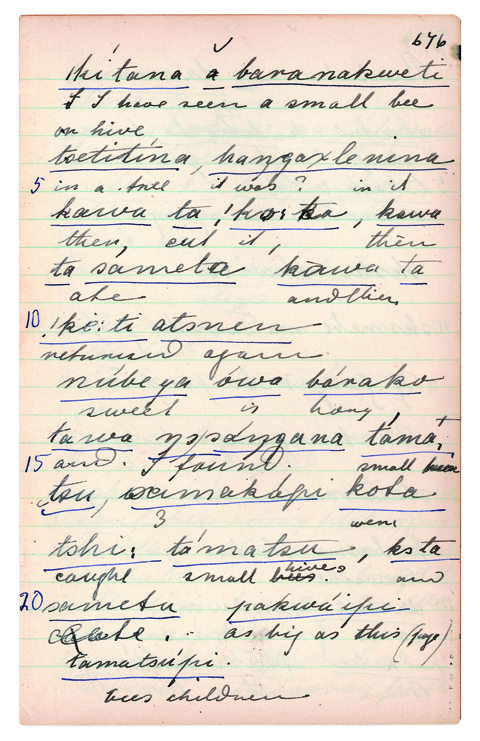 646
!kitana a baranakweti
I I have seen a small bee
or hive
tsetitína, haŋgaxlenina
5 in a tree it was? in it
kawa ta, !ko: ta, kawa
then, cut it, then
ta sameta kawa ta
ate and then
10 !ke:ti atsnen
returned again
núbeya ówa bárako
sweet is hony
tawa ŋsóŋgana támá,
15 and. I found. small
tsu, samakápi kota
3 were
tshi: támatsu, ksta
caught small hives. and
20 sametu pakwáipi
ate. as big as this (page)
tamatsúpi.
bees children